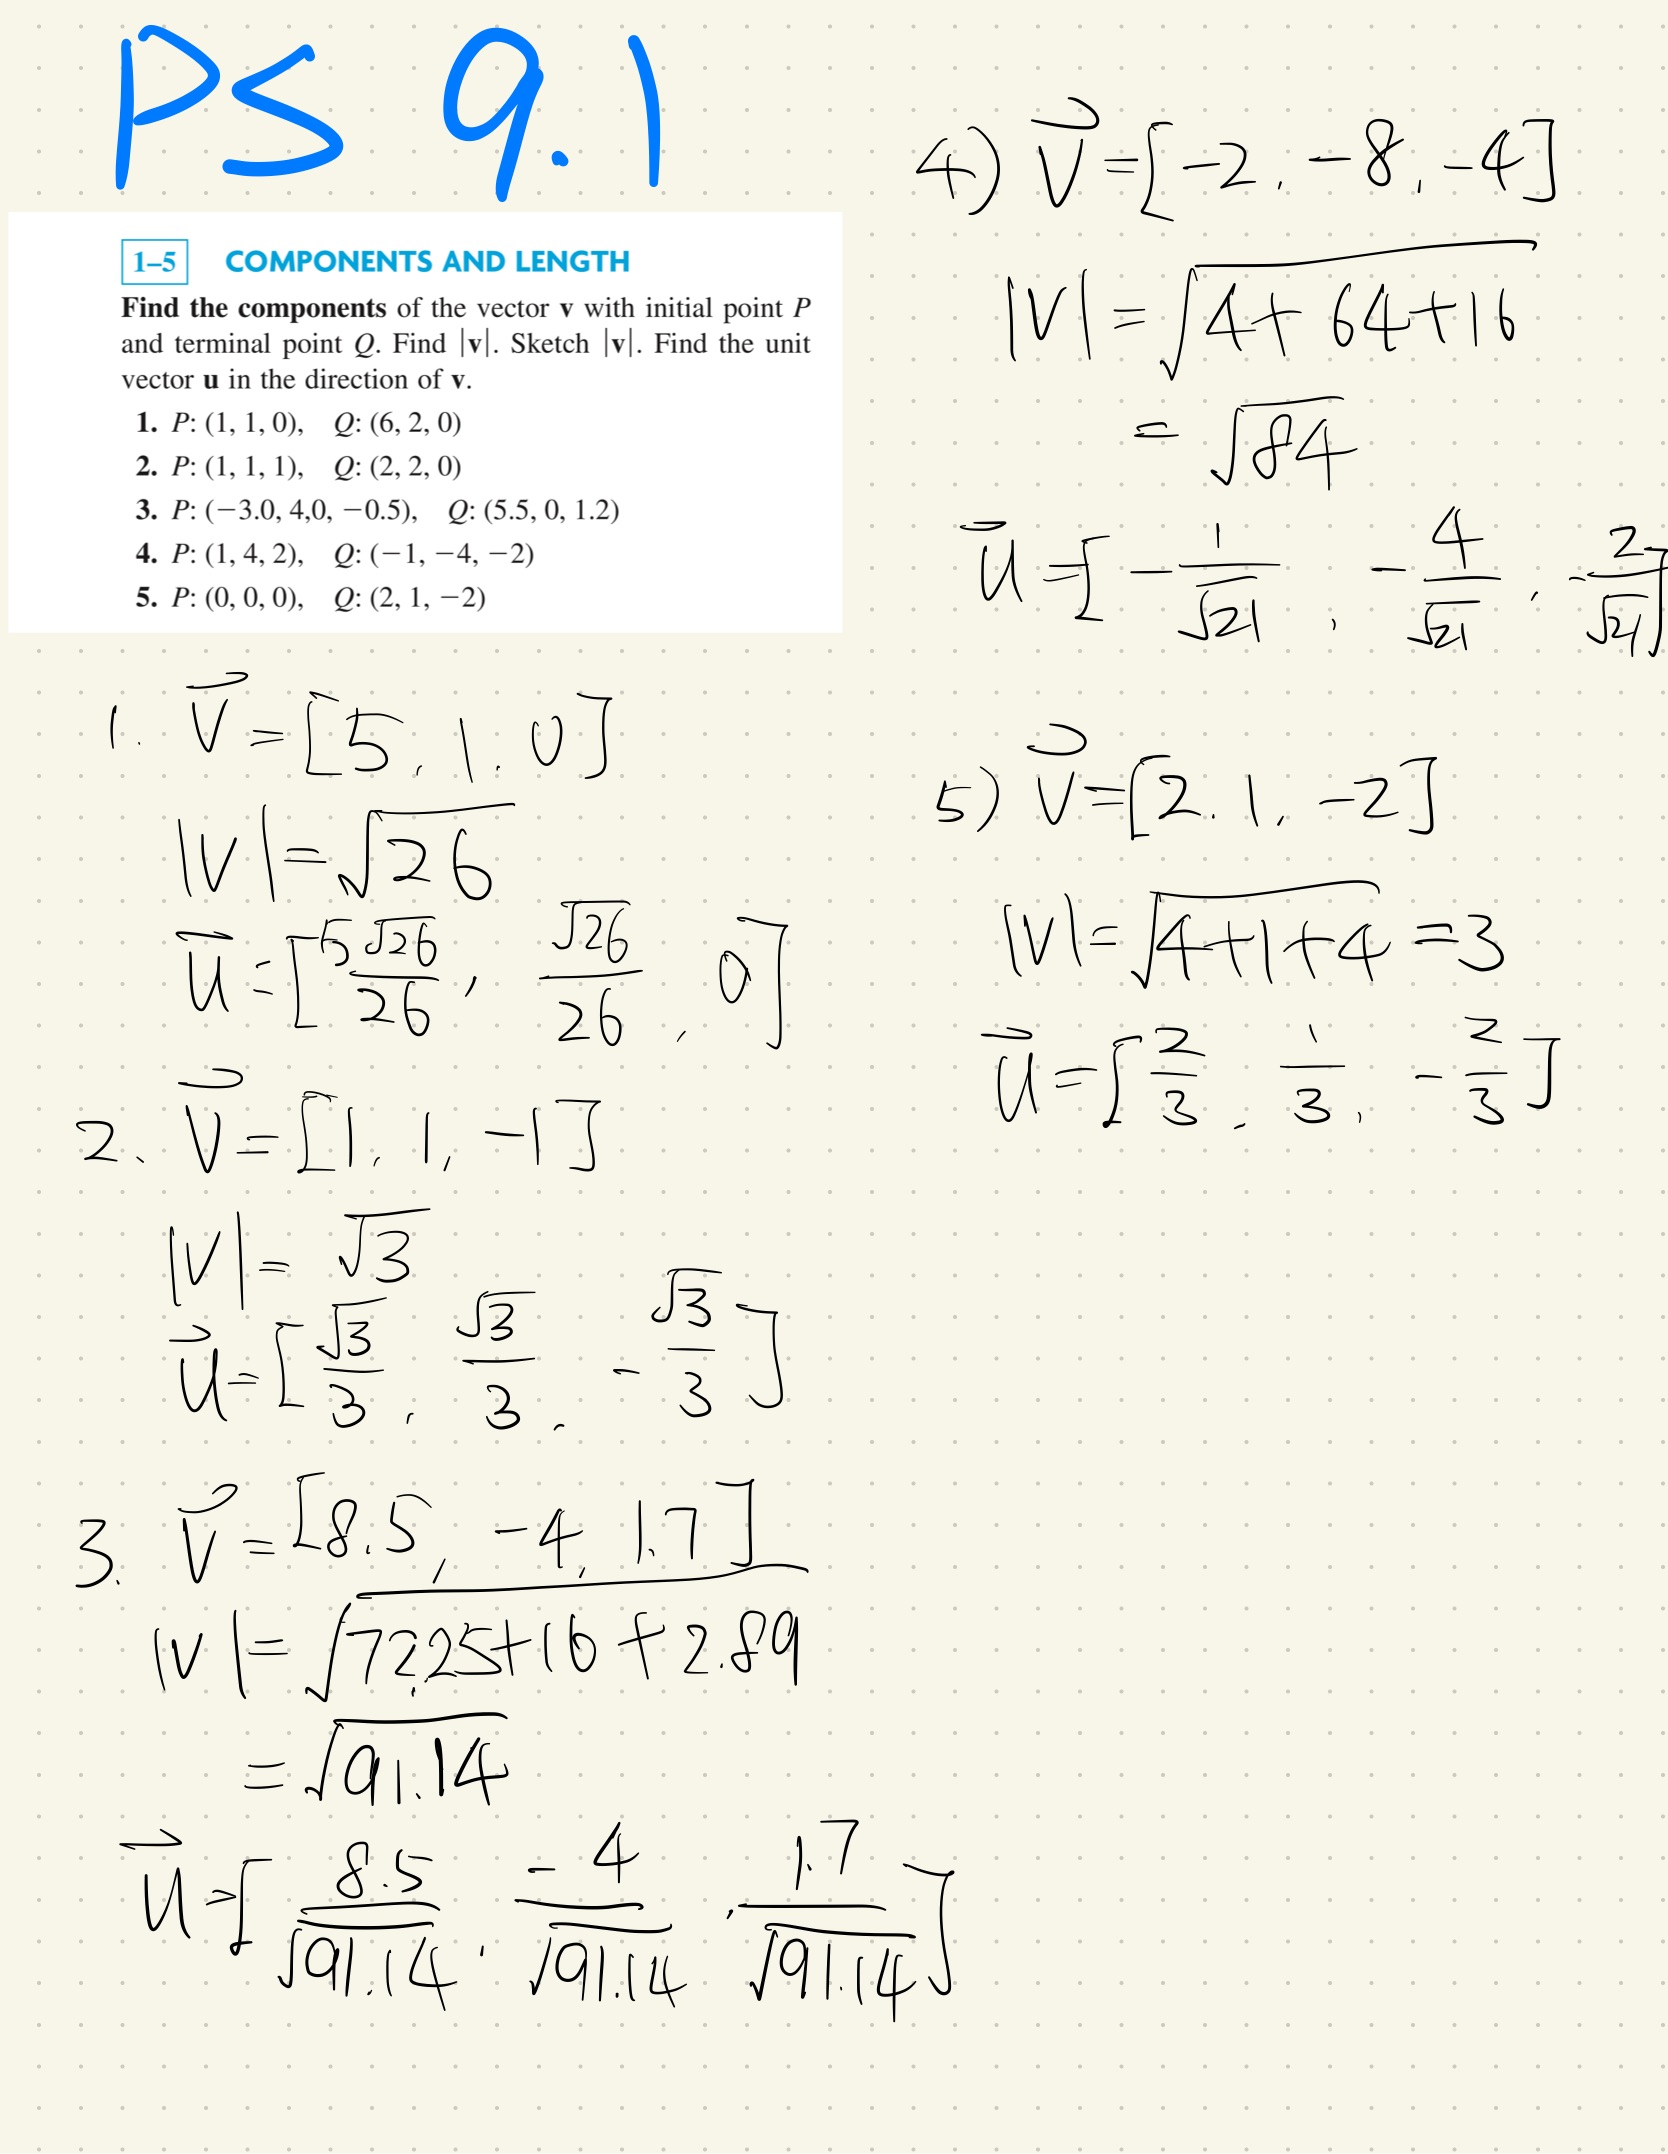 PS 9.1
1–5 COMPONENTS AND LENGTH
Find the components of the vector v with initial point P
and terminal point Q. Find |v|. Sketch |v|. Find the unit
vector u in the direction of v.
1. P: (1, 1, 0), Q: (6, 2, 0)
2. P: (1, 1, 1), Q: (2, 2, 0)
3. P: (−3.0, 4,0, −0.5), Q: (5.5, 0, 1.2)
4. P: (1, 4, 2), Q: (−1, −4, −2)
5. P: (0, 0, 0), Q: (2, 1, −2)
1. v⃗ = [5, 1, 0]
|V| = √26
u⃗ = [5√26/26, √26/26, 0]
2. v⃗ = [1, 1, −1]
|V| = √3
u⃗ = [√3/3, √3/3, −√3/3]
3. v⃗ = [8.5, −4, 1.7]
|V| = √(72.25+16+2.89)
= √91.14
u⃗ = [8.5/√91.14, −4/√91.14, 1.7/√91.14]
4) v⃗ = [−2, −8, −4]
|V| = √(4+64+16)
= √84
u⃗ = [−1/√21, −4/√21, −2/√21]
5) v⃗ = [2, 1, −2]
|V| = √(4+1+4) = 3
u⃗ = [2/3, 1/3, −2/3]